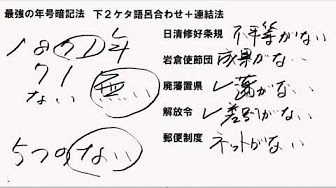 最強の年号暗記法　下２ケタ語呂合わせ＋連結法
日清修好条規 不平等がない
岩倉使節団 成果がない
廃藩置県 藩がない
解放令 差別がない
郵便制度 ネットがない
1871年
71
ない 無い
5つのない